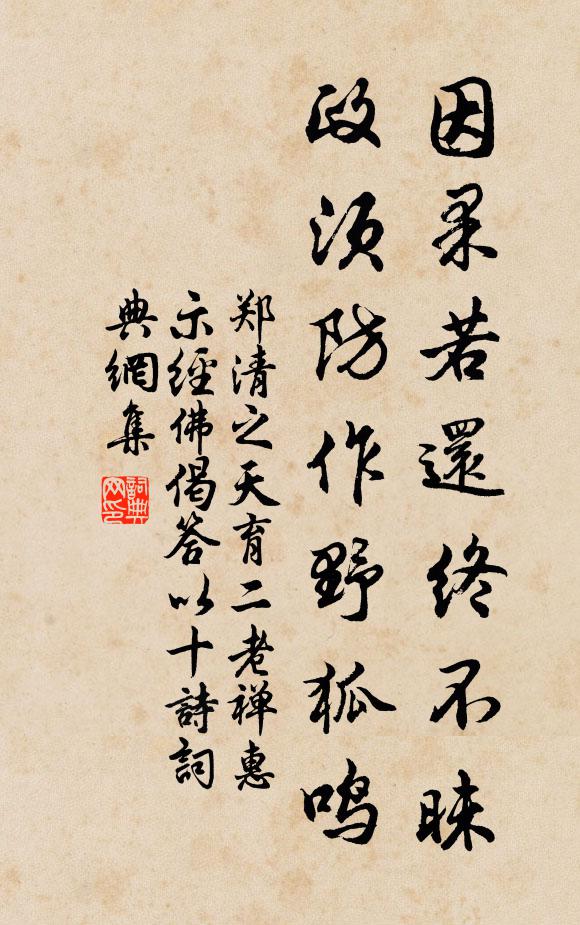 因果若還終不昧
政须防作野狐鸣
郑清之天育二老禅惠
示經佛偈答以十詩詞
典網集
詞典网印